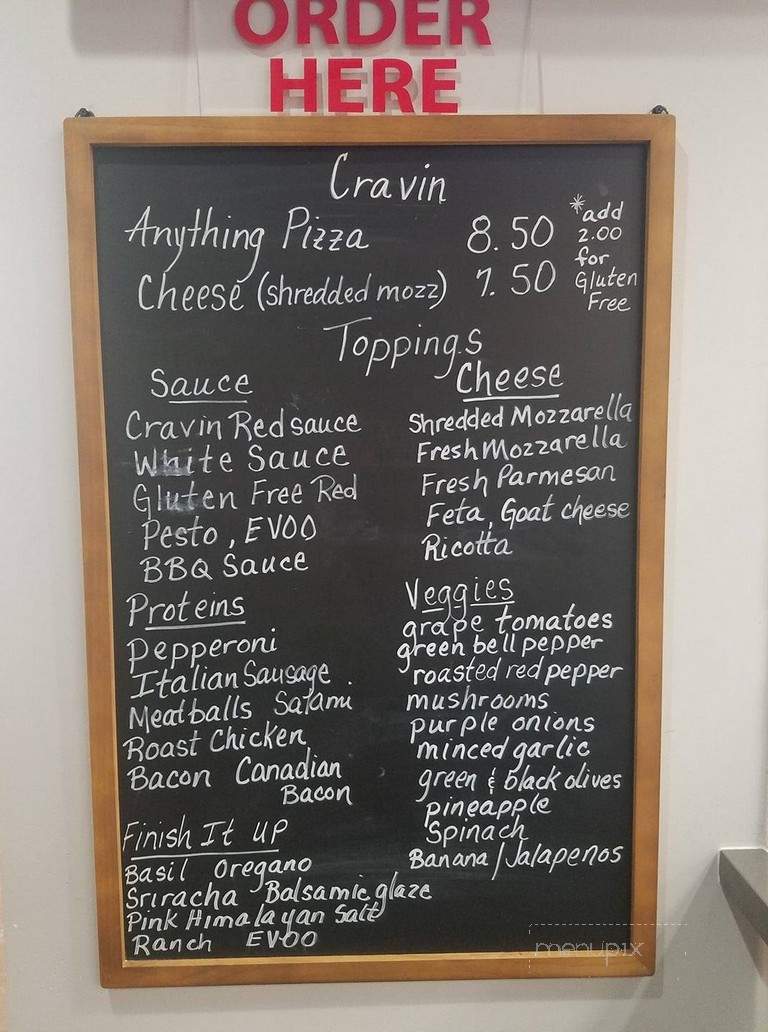 ORDER
HERE
Cravin
Anything Pizza 8.50
Cheese (shredded mozz) 7.50
*add
2.00
for
Gluten
Free
Toppings
Sauce
Cravin Red sauce
White Sauce
Gluten Free Red
Pesto, EVOO
BBQ Sauce
Proteins
Pepperoni
Italian Sausage
Meatballs Salami
Roast Chicken
Bacon Canadian
Bacon
Finish It UP
Basil Oregano
Sriracha Balsamic glaze
Pink Himalayan Salt
Ranch EVOO
Cheese
Shredded Mozzarella
Fresh Mozzarella
Fresh Parmesan
Feta, Goat cheese
Ricotta
Veggies
grape tomatoes
green bell pepper
roasted red pepper
mushrooms
purple onions
minced garlic
green & black olives
pineapple
Spinach
Banana/Jalapenos
menupix